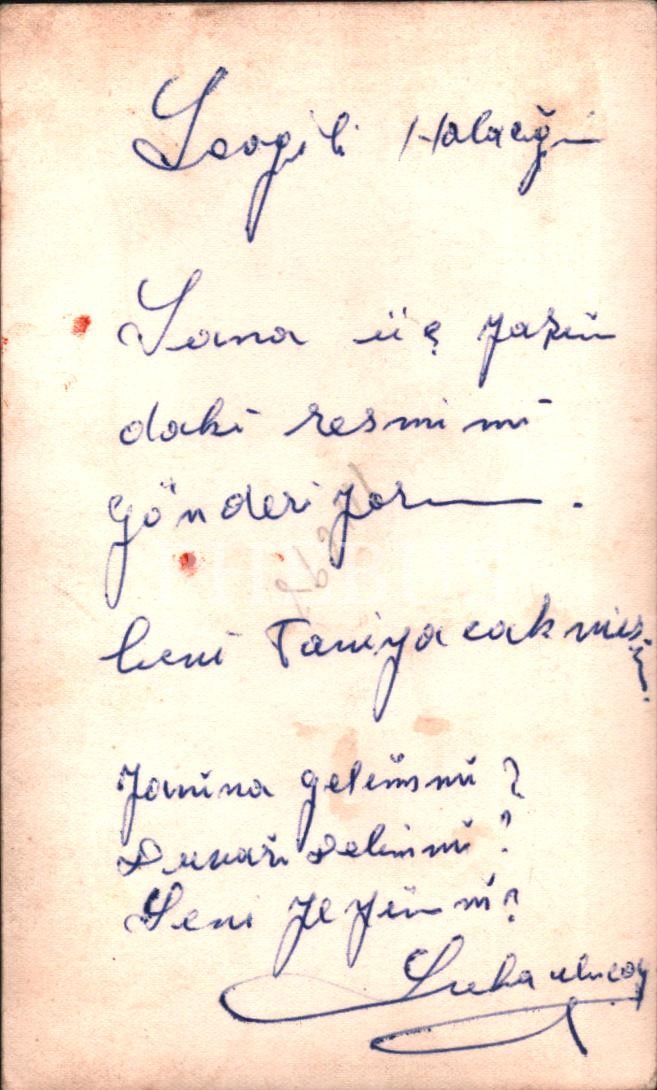 Sevgili Halacığım
Sana üç yaşım
daki resmimi
gönderiyorum.
beni Tanıyacakmıs?
Yanına gelimmi?
Duvarı delimmi?
Seni yeyimmi?
Suha